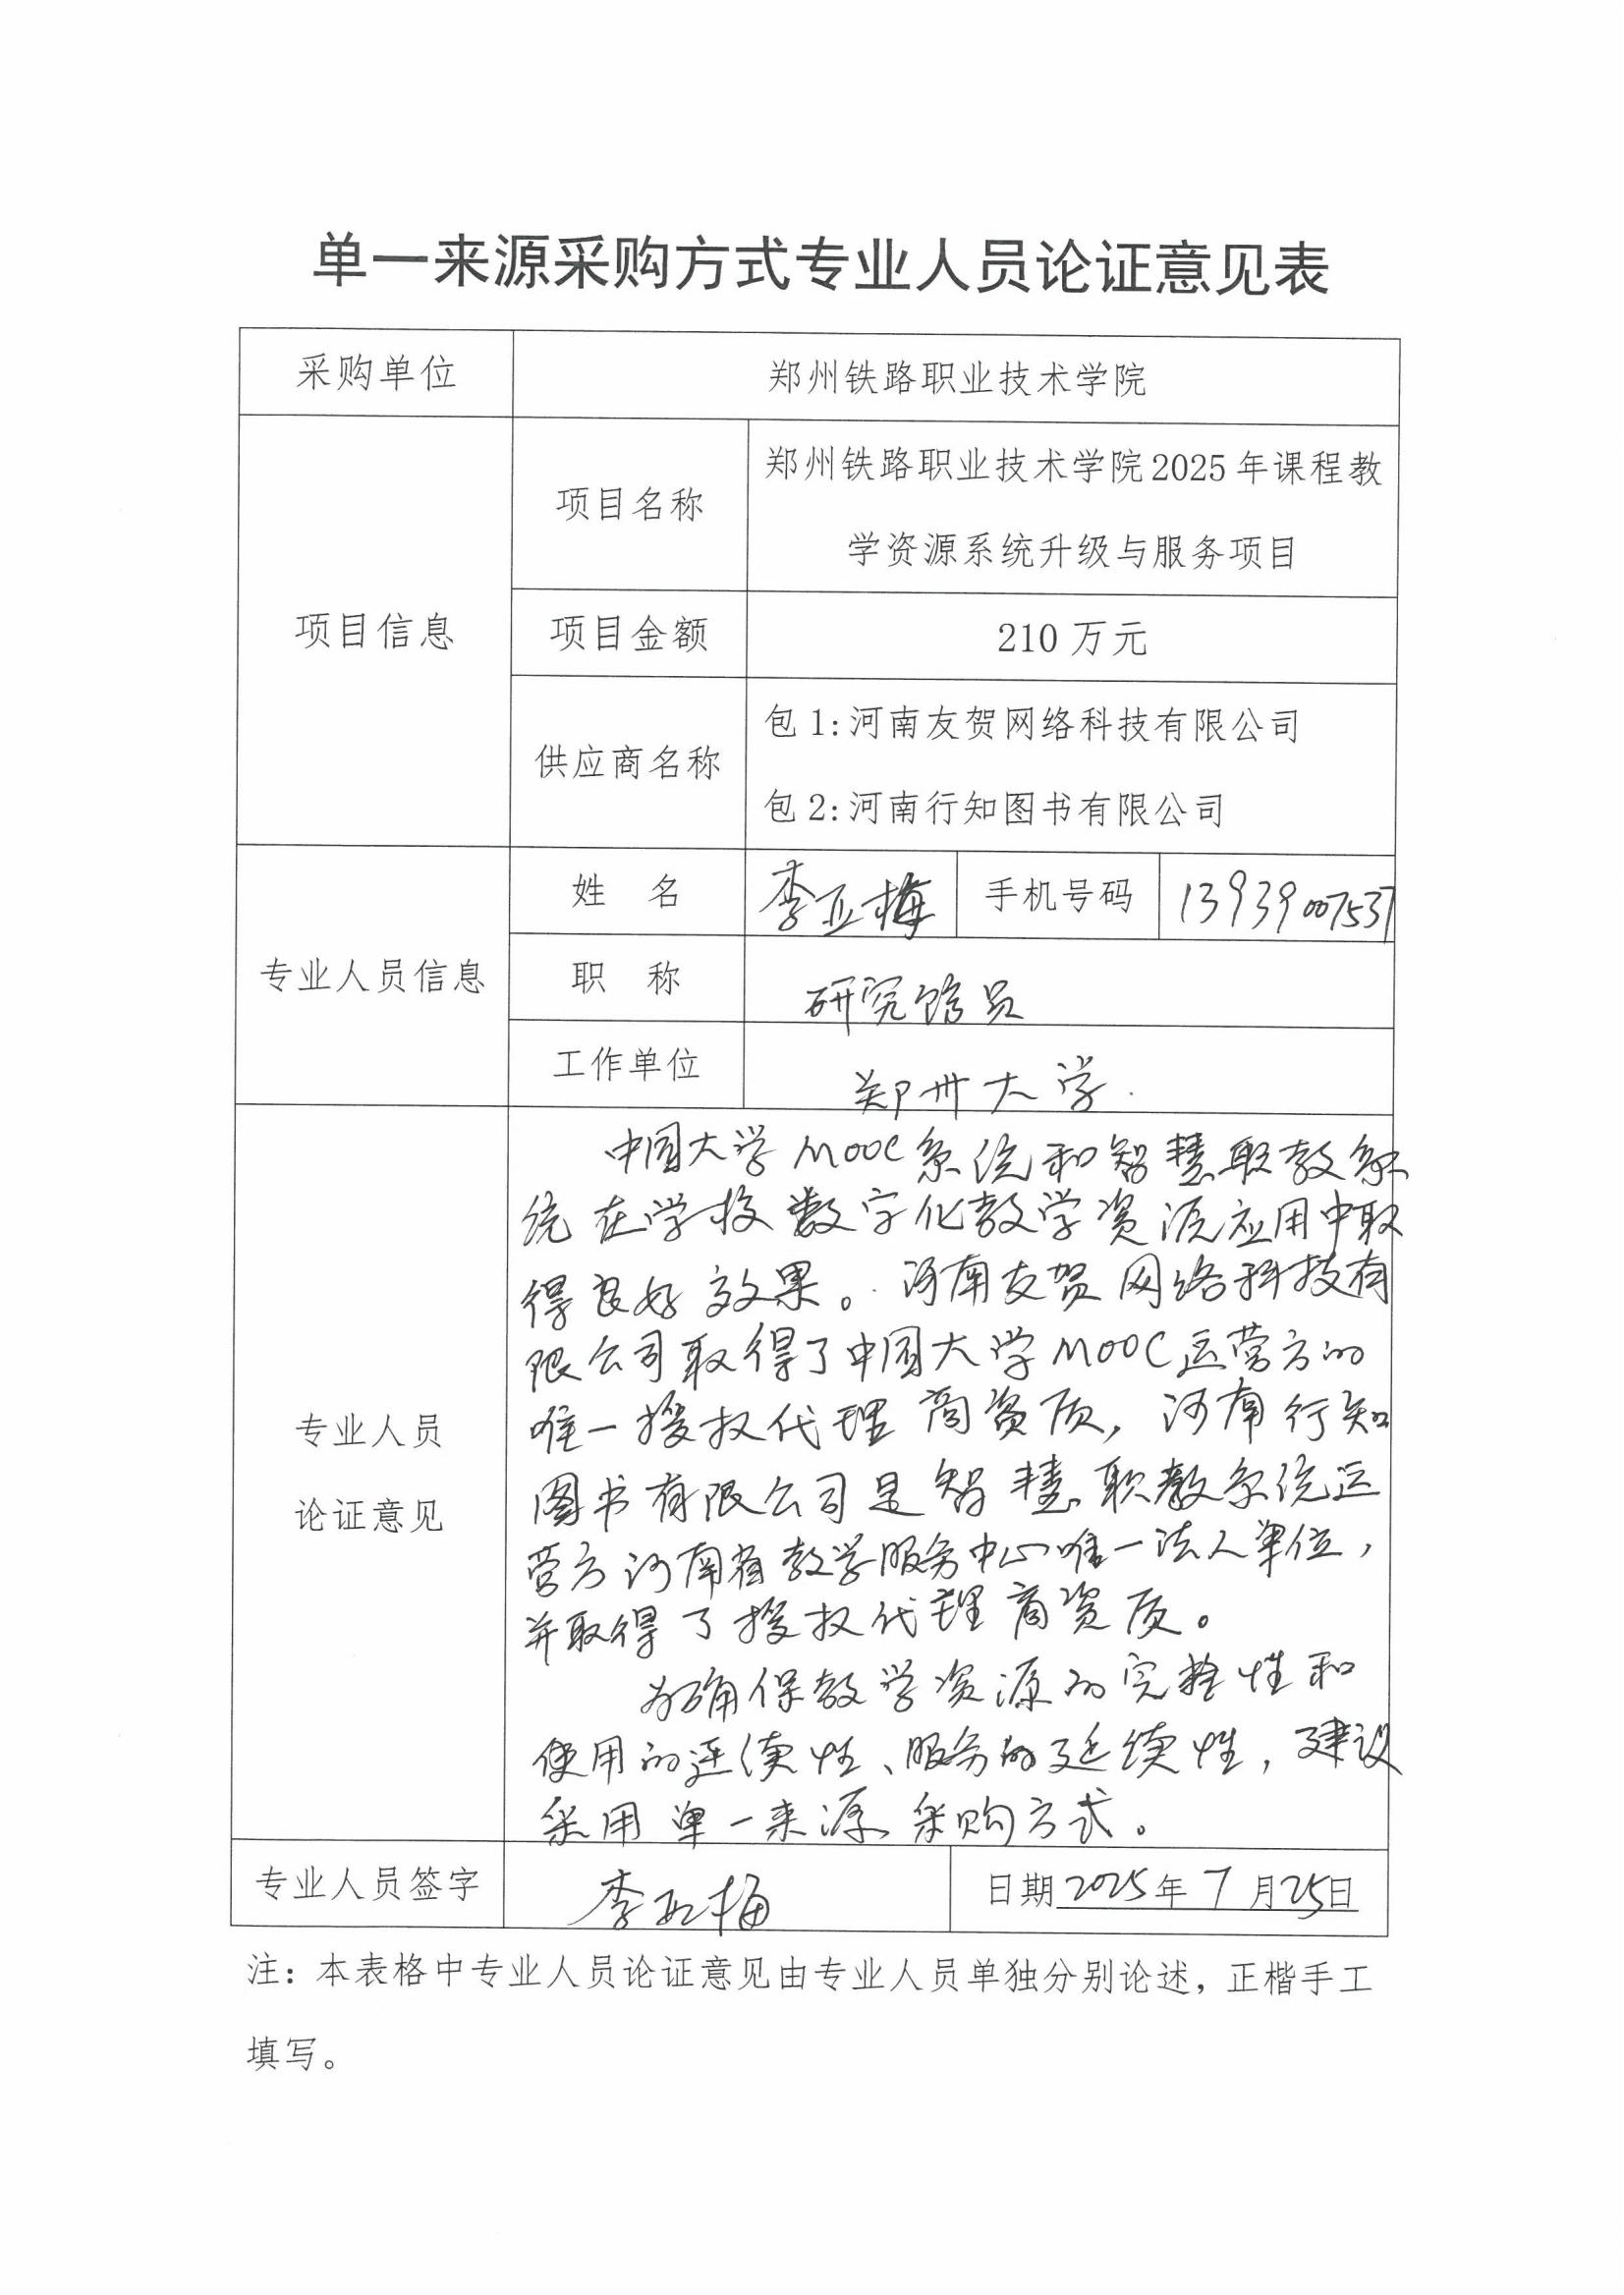 单一来源采购方式专业人员论证意见表
采购单位 郑州铁路职业技术学院
项目信息
项目名称
郑州铁路职业技术学院2025年课程教
学资源系统升级与服务项目
项目金额 210万元
供应商名称
包1:河南友贺网络科技有限公司
包2:河南行知图书有限公司
专业人员信息
姓 名 李亚梅 手机号码 13939007537
职 称 研究馆员
工作单位 郑州大学
专业人员
论证意见
中国大学MOOC系统和智慧职教系
统在学校数字化教学资源应用中取
得良好效果。河南友贺网络科技有
限公司取得了中国大学MOOC运营方的
唯一授权代理商资质,河南行知
图书有限公司是智慧职教系统运
营方河南省教学服务中心唯一法人单位,
并取得了授权代理商资质。
为确保教学资源的完整性和
使用的连续性、服务的延续性,建议
采用单一来源采购方式。
专业人员签字 李亚梅 日期2025年7月25日
注:本表格中专业人员论证意见由专业人员单独分别论述,正楷手工
填写。